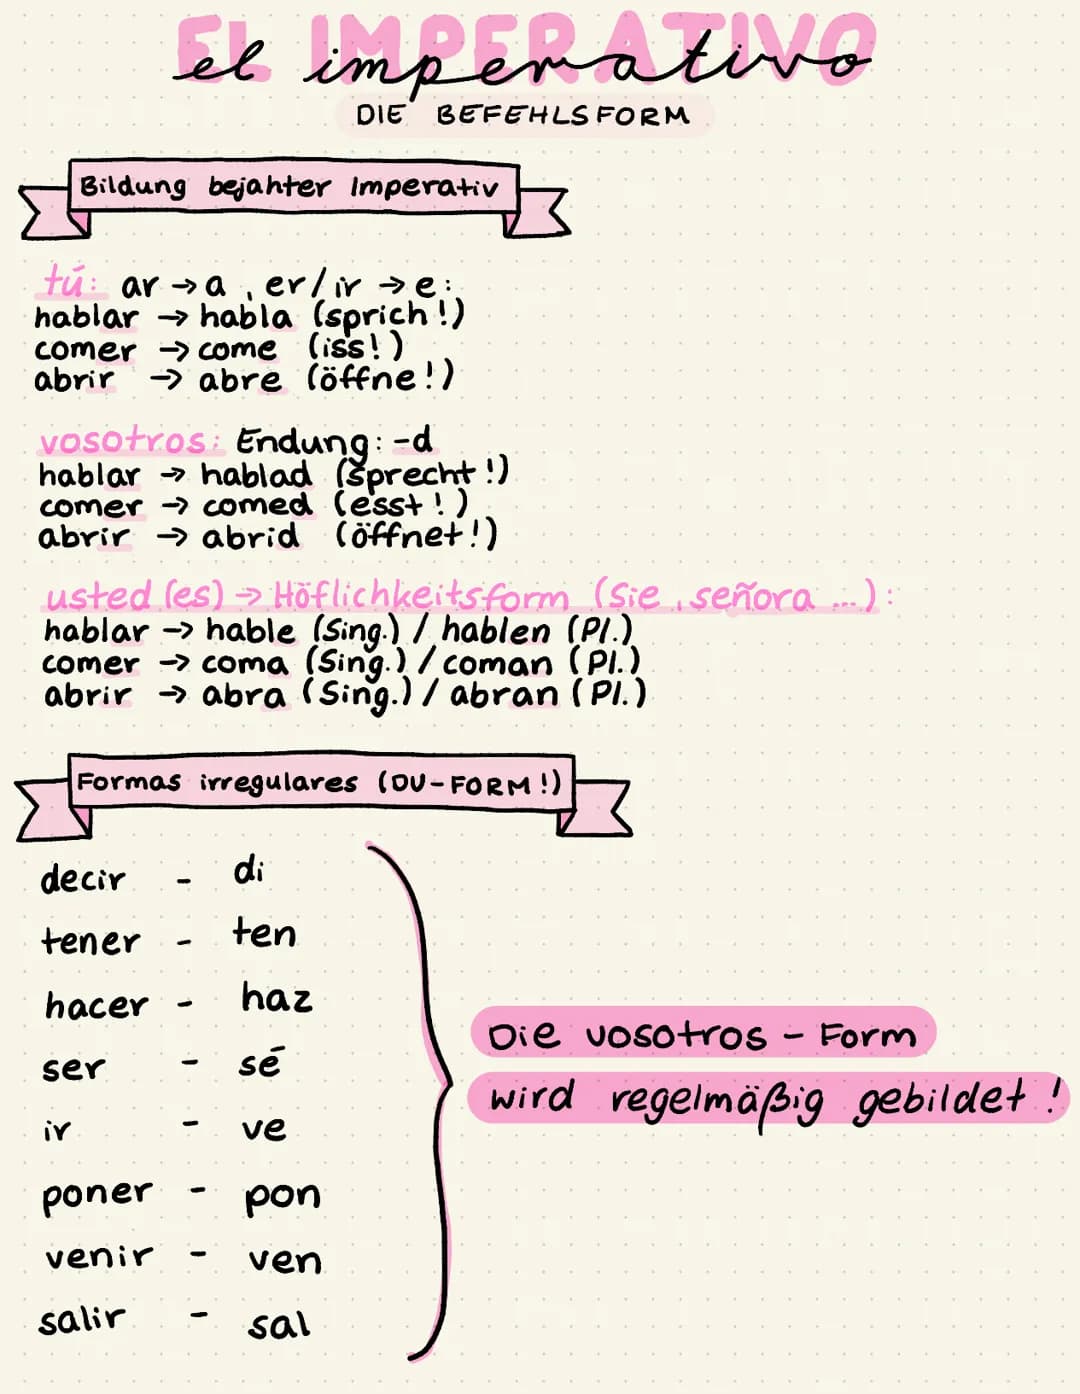 EL IMPERATIVO
el imperativo
DIE BEFEHLSFORM
Bildung bejahter Imperativ
tú: ar → a, er/ir → e:
hablar → habla (sprich!)
comer → come (iss!)
abrir → abre (öffne!)
vosotros: Endung: -d
hablar → hablad (sprecht!)
comer → comed (esst!)
abrir → abrid (öffnet!)
usted (es) → Höflichkeitsform (Sie, señora ...):
hablar → hable (Sing.) / hablen (Pl.)
comer → coma (Sing.) / coman (Pl.)
abrir → abra (Sing.) / abran (Pl.)
Formas irregulares (DU-FORM!)
decir - di
tener - ten
hacer - haz
ser - sé
ir - ve
poner - pon
venir - ven
salir - sal
Die vosotros - Form
wird regelmäßig gebildet!